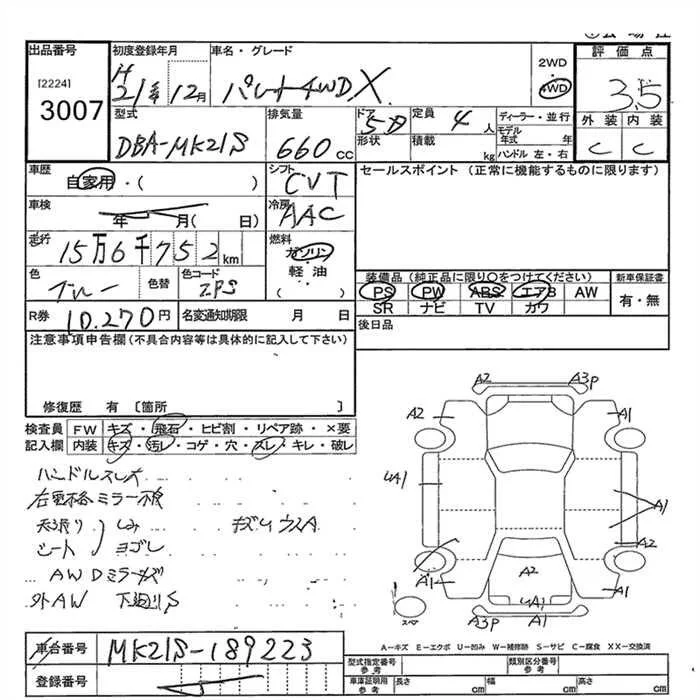 出品番号 初度登録年月 車名・グレード 2WD 4WD 評価点
[2224] 3007 H 21年 12月 パレット4WD X 3.5
型式 排気量 ドア 定員 ディーラー・並行 外装 内装
DBA-MK21S 660cc 5D 4人 モデル年式 年 C C
形状 積載 kg ハンドル 左・右
車歴 自家用・( ) シフト CVT セールスポイント (正常に機能するものに限ります)
車検 年 月( 日) 冷房 AAC
走行 15万6千752km 燃料 ガソリン 軽油 ( )
色 ブルー 色替 色コード ZPS
装備品 (純正品に限り○をつけてください) 新車保証書
PS PW ABS エアB AW 有・無
SR ナビ TV カワ
R券 10,270円 名変通知期限 月 日 後日品
注意事項申告欄(不具合内容等は具体的に記入して下さい)
修復歴 有 [箇所 ]
検査員 FW キズ・飛石・ヒビ割・リペア跡・×要
記入欄 内装 キズ・汚レ・コゲ・穴・スレ・キレ・破レ
ハンドルスレ大
右電格ミラー不良
天張り しみ キズ、ウスA
シート ヨゴレ
AWDミラーキズ
外AW 下廻りS
A2 A3P
A2 A1
UA1 A1
A2
A1 A2 A1
UA1
スペア A3P A1
A-キズ E-エクボ U-凹み W-補修跡 S-サビ C-腐食 XX-交換済
車台番号 MK21S-189223
型式指定番号 参考 類別区分番号 参考
登録番号
車庫証明用 参考 長さ cm 幅 cm 高さ cm